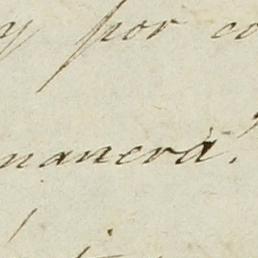 y por co
manera.